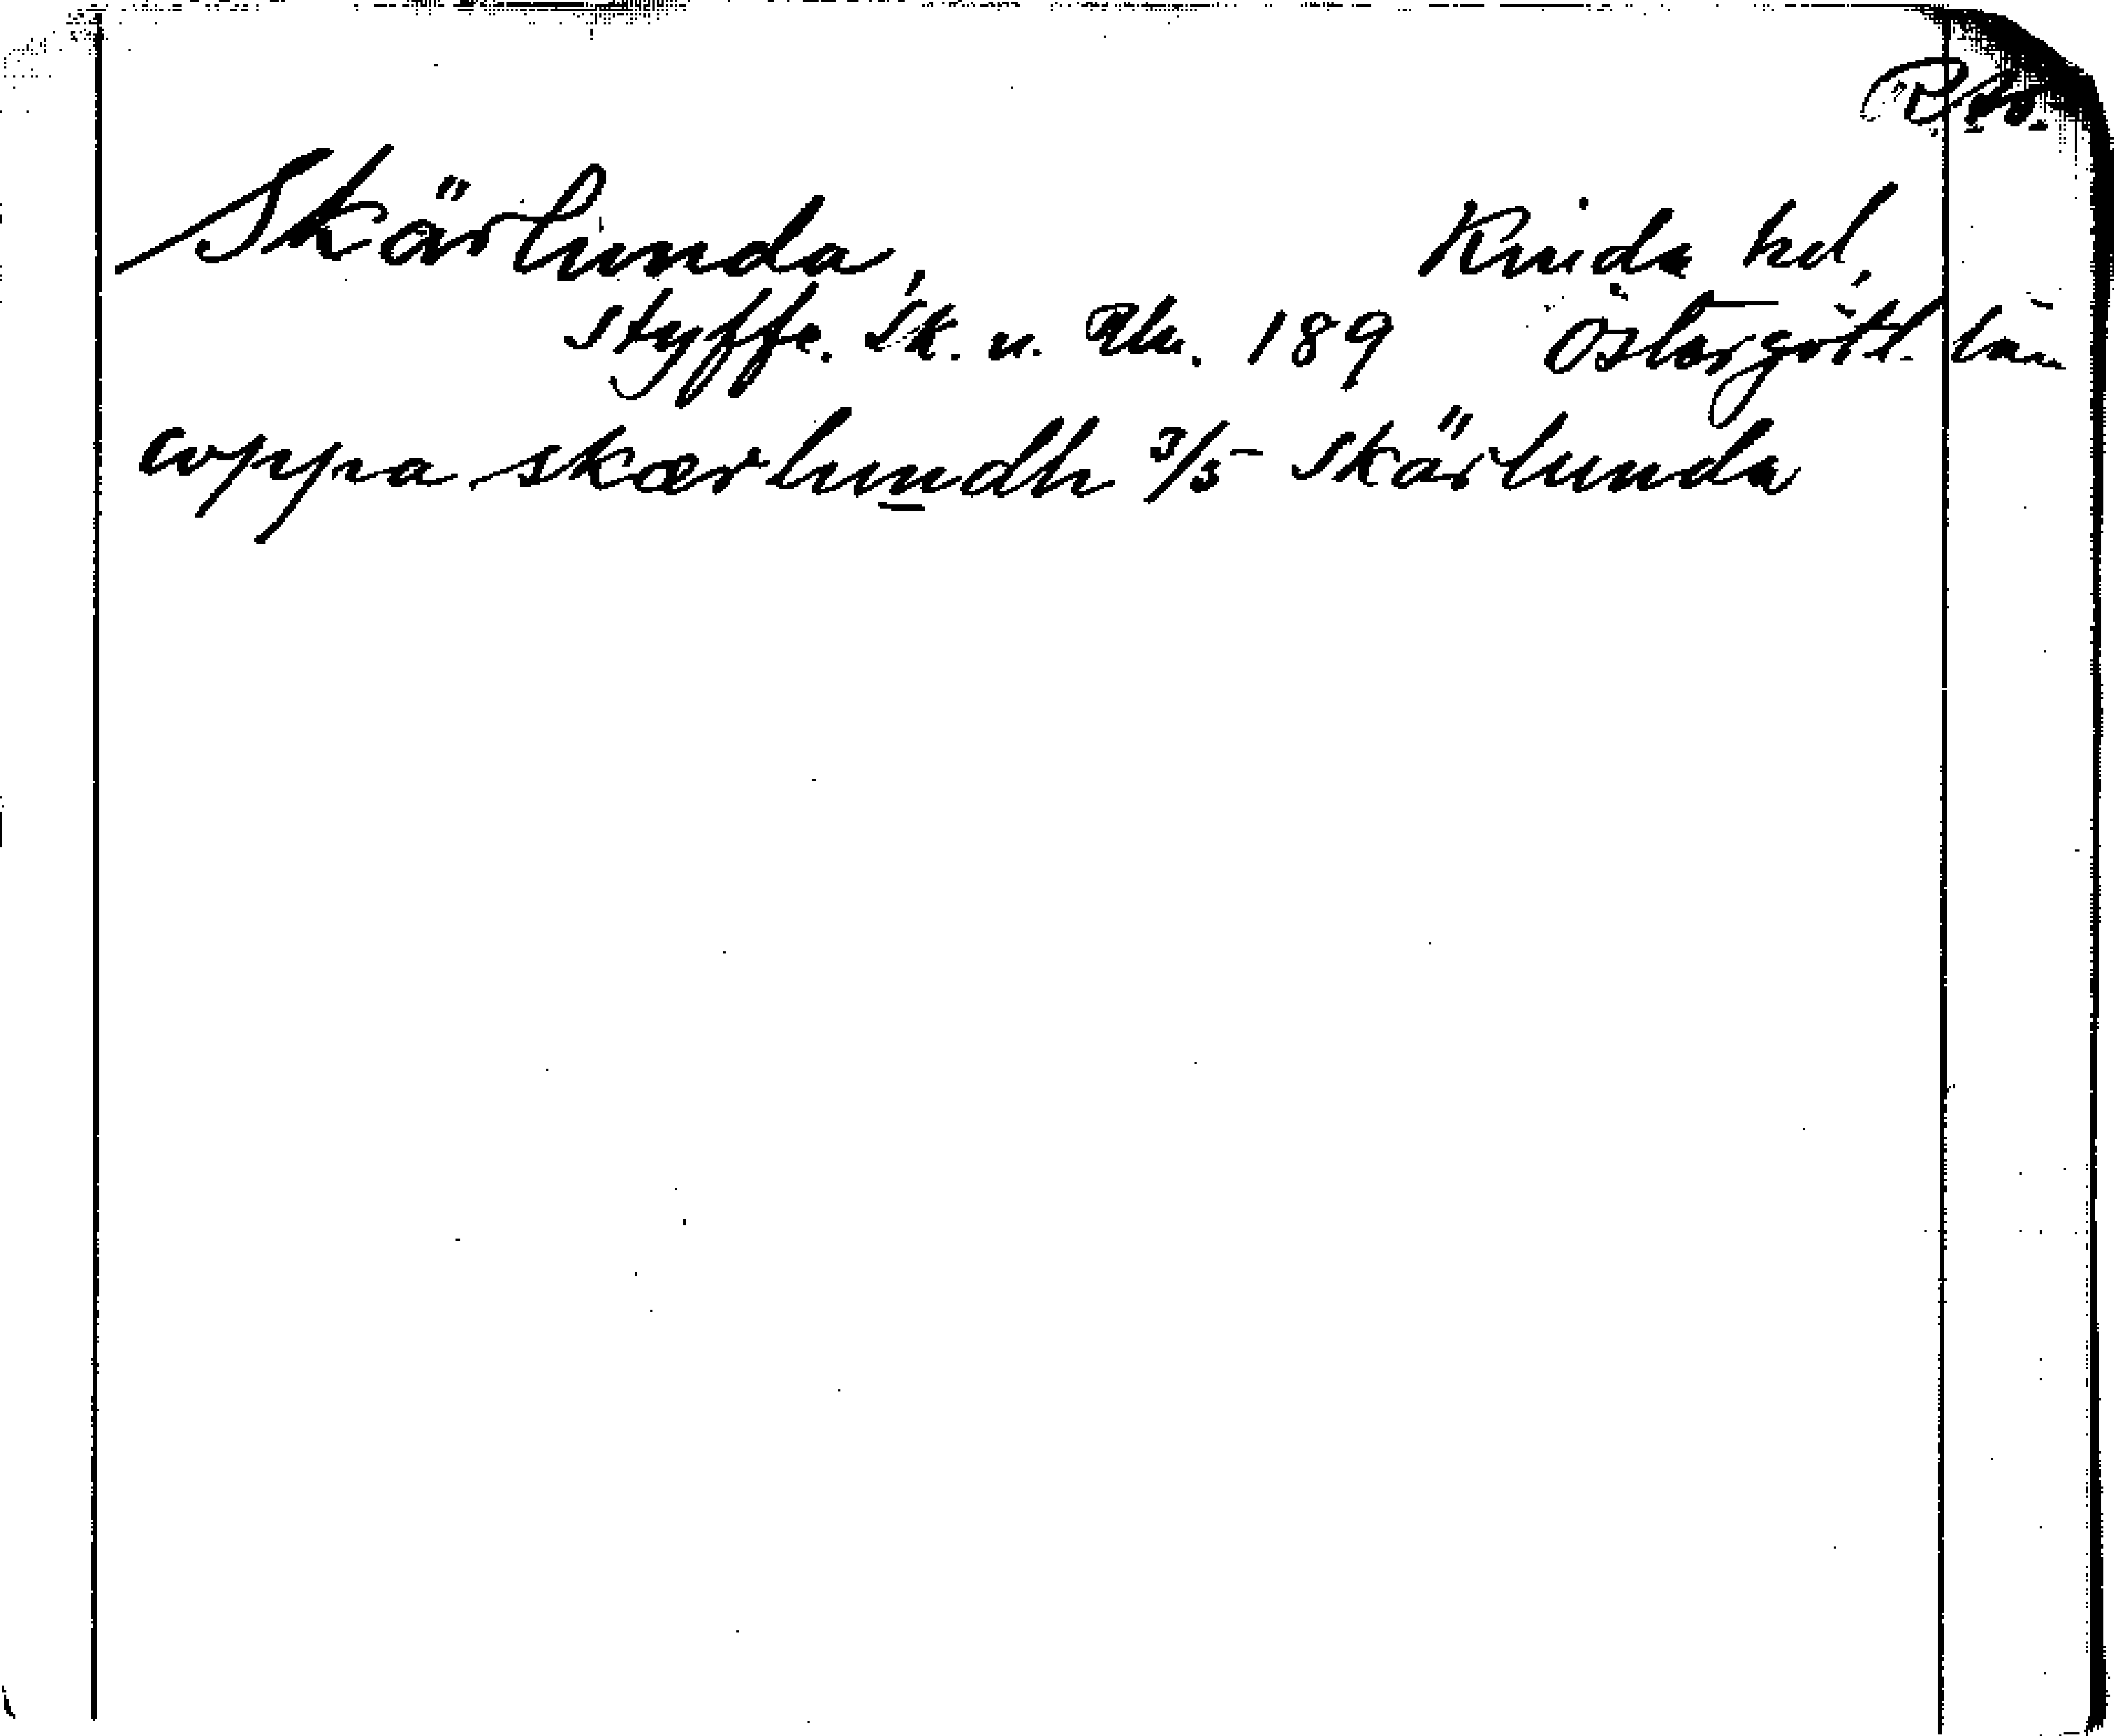 Skärlunda, Kinda hd,
Styffe. Sk. u. Un. 189 Östergötl. län
uppa skærlundh 3/5 Skärlunda